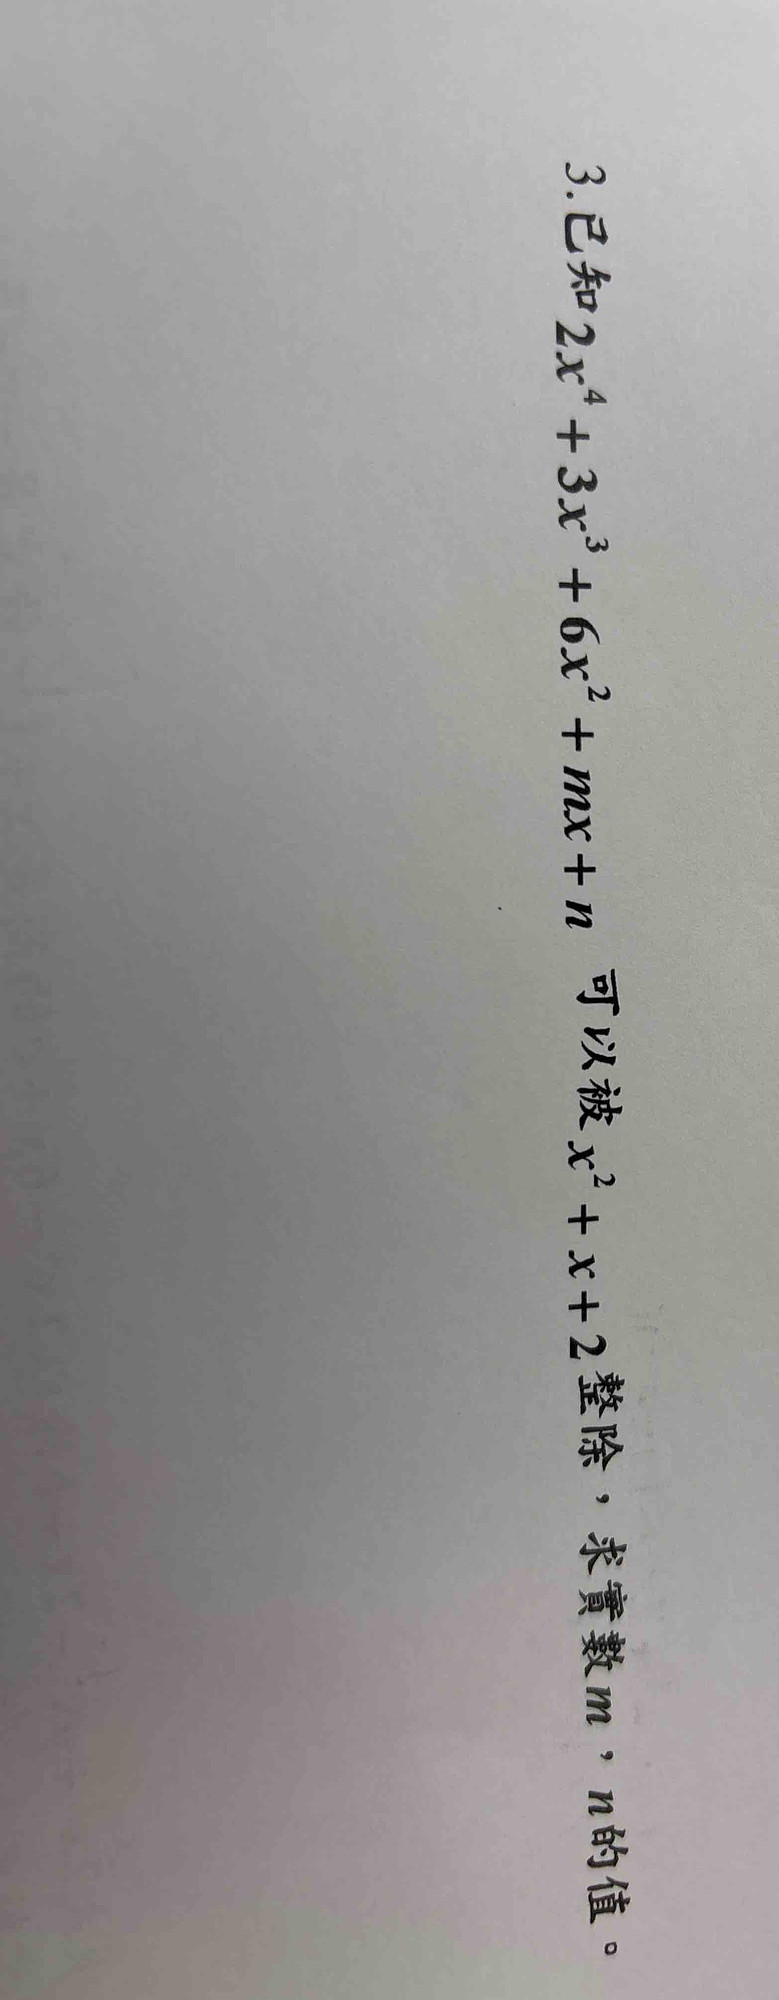 3.已知2x⁴+3x³+6x²+mx+n 可以被x²+x+2整除，求實數m，n的值。